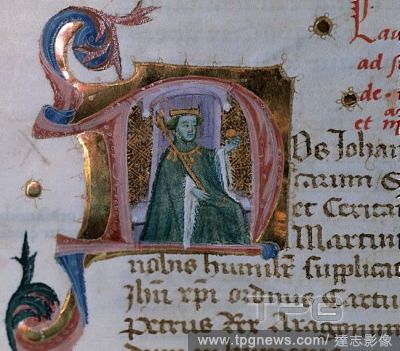 Lau
ad s
de
et m
N
os Johan
carum S
et Cerita
Martin
nobis humile supplica
Jhu xpi ordinis Cartu
Petrus Rex Aragonum
TPG
www.tpgnews.com/達志影像